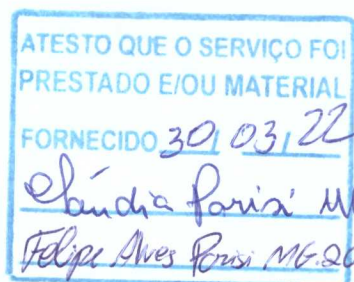 ATESTO QUE O SERVIÇO FOI
PRESTADO E/OU MATERIAL
FORNECIDO 30/03/22
Cláudia Parisi M
Felipe Alves Parisi MG.20